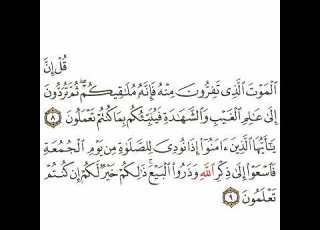 قُلْ إِنَّ
الْمَوْتَ الَّذِي تَفِرُّونَ مِنْهُ فَإِنَّهُ مُلَاقِيكُمْ ۖ ثُمَّ تُرَدُّونَ
إِلَىٰ عَالِمِ الْغَيْبِ وَالشَّهَادَةِ فَيُنَبِّئُكُم بِمَا كُنتُمْ تَعْمَلُونَ ٨
يَا أَيُّهَا الَّذِينَ آمَنُوا إِذَا نُودِيَ لِلصَّلَاةِ مِن يَوْمِ الْجُمُعَةِ
فَاسْعَوْا إِلَىٰ ذِكْرِ اللَّهِ وَذَرُوا الْبَيْعَ ۚ ذَٰلِكُمْ خَيْرٌ لَّكُمْ إِن كُنتُمْ
تَعْلَمُونَ ٩